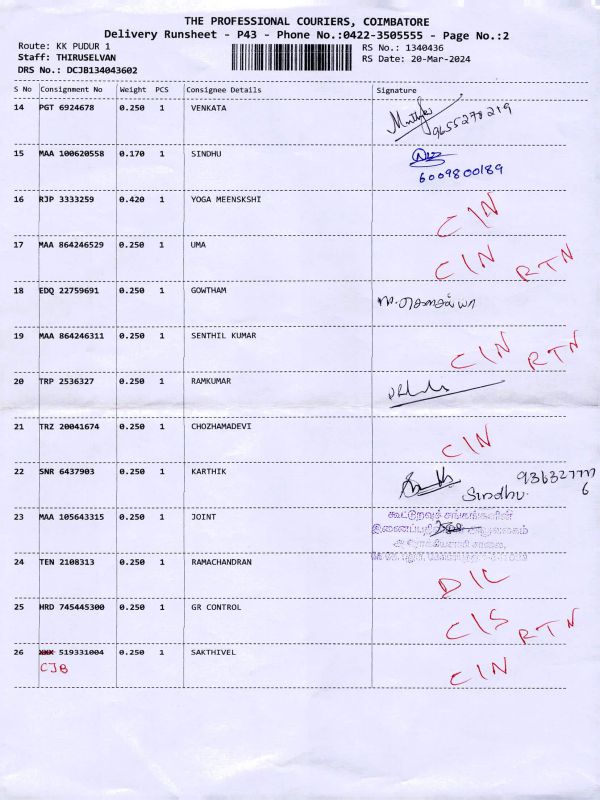 THE PROFESSIONAL COURIERS, COIMBATORE
Delivery Runsheet - P43 - Phone No.:0422-3505555 - Page No.:2
Route: KK PUDUR 1
RS No.: 1340436
Staff: THIRUSELVAN
RS Date: 20-Mar-2024
DRS No.: DCJB134043602
S No Consignment No Weight PCS Consignee Details Signature
14 PGT 6924678 0.250 1 VENKATA
9655278219
15 MAA 100620558 0.170 1 SINDHU
6009800189
16 RJP 3333259 0.420 1 YOGA MEENSKSHI C/N
17 MAA 864246529 0.250 1 UMA C/N RTN
18 EDQ 22759691 0.250 1 GOWTHAM
19 MAA 864246311 0.250 1 SENTHIL KUMAR C/N RTN
20 TRP 2536327 0.250 1 RAMKUMAR
21 TRZ 20041674 0.250 1 CHOZHAMADEVI C/N
22 SNR 6437903 0.250 1 KARTHIK 9363277776
Sindhu.
23 MAA 105643315 0.250 1 JOINT கூட்டுறவுச் சங்கங்களின்
24 TEN 2108313 0.250 1 RAMACHANDRAN D/L
25 HRD 745445300 0.250 1 GR CONTROL C/S RTN
26 519331004 0.250 1 SAKTHIVEL C/N
CJB